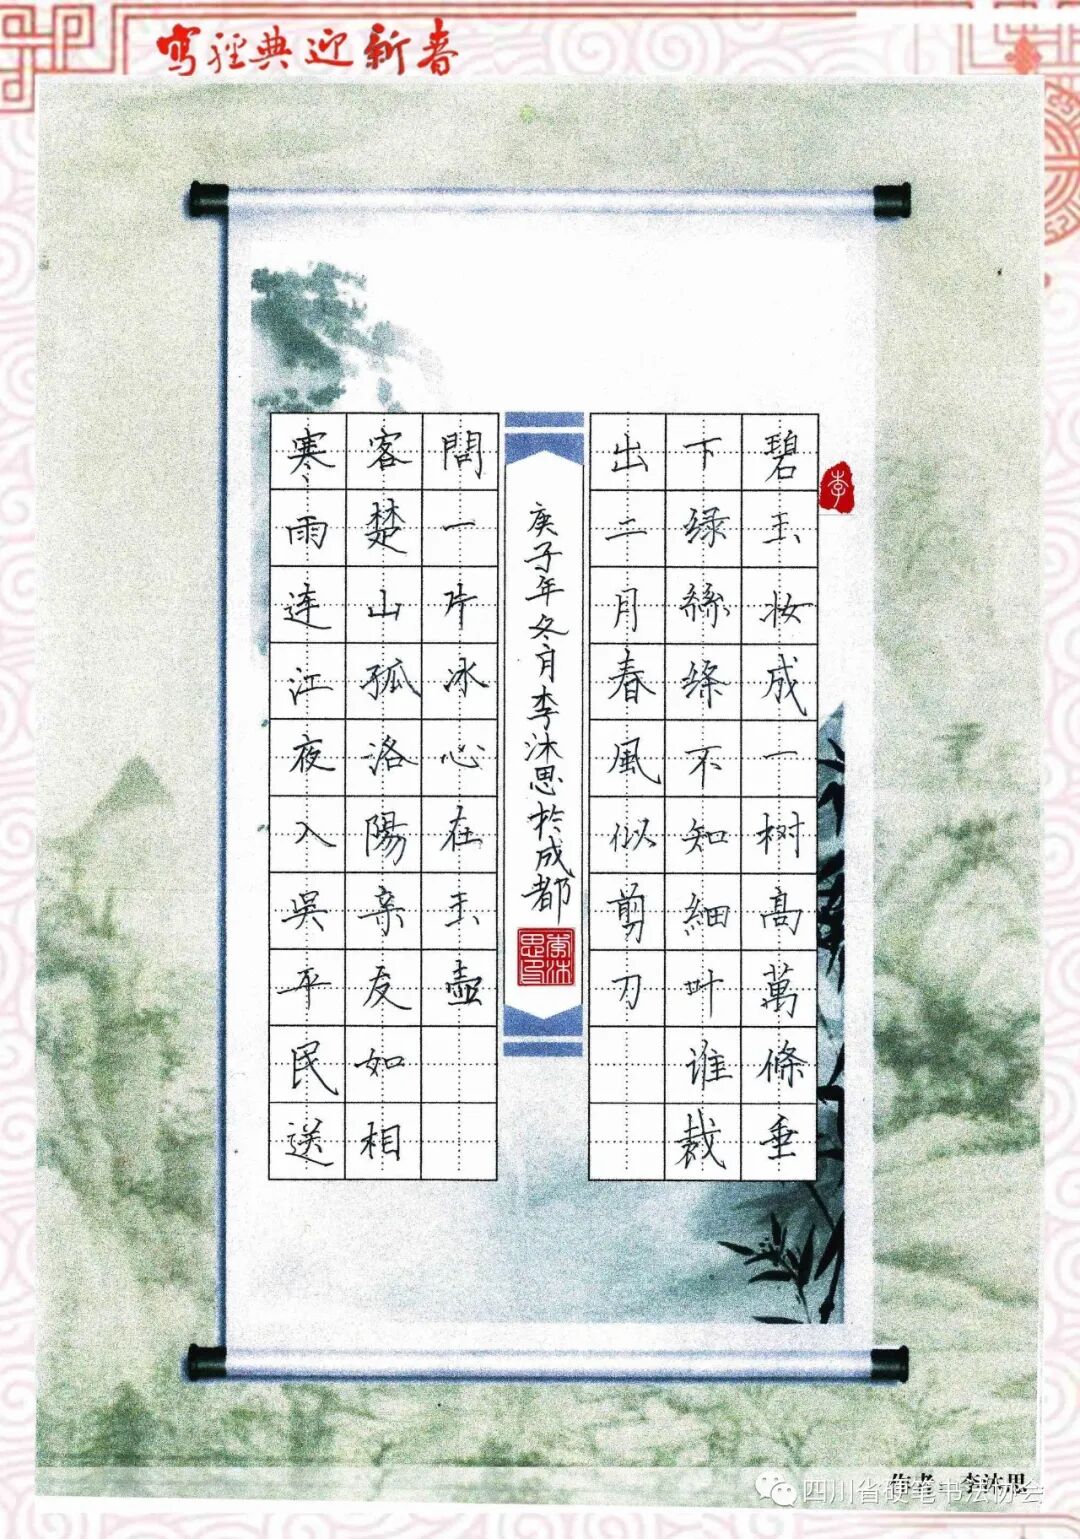 寫經典迎新春
碧玉妆成一树高萬條垂
下绿絲绦不知細叶谁裁
出二月春風似剪刀
李
庚子年冬月李沐思於成都
李沐思印
寒雨连江夜入吳平民送
客楚山孤洛陽亲友如相
問一片冰心在玉壺
作者：李沐思
四川省硬笔书法协会